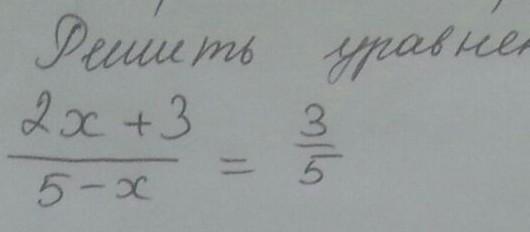 Решить уравнен
2x + 3 / 5 - x = 3 / 5